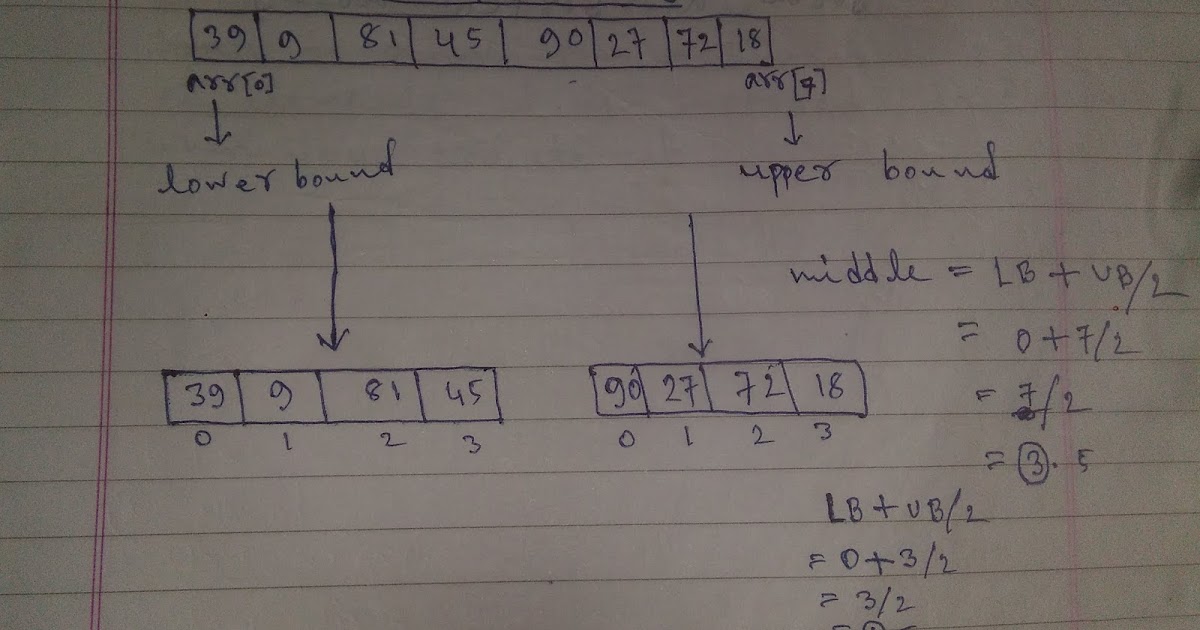 39 9 81 45 90 27 72 18
arr[0] arr[7]
lower bound upper bound
middle = LB + UB/2
= 0+7/2
= 7/2
= 3.5
39 9 81 45 90 27 72 18
0 1 2 3 0 1 2 3
LB + UB/2
= 0+3/2
= 3/2